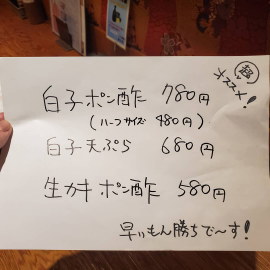 オススメ!
白子ポン酢 780円
(ハーフサイズ 480円)
白子天ぷら 680円
生カキポン酢 580円
早いもん勝ちで〜す!